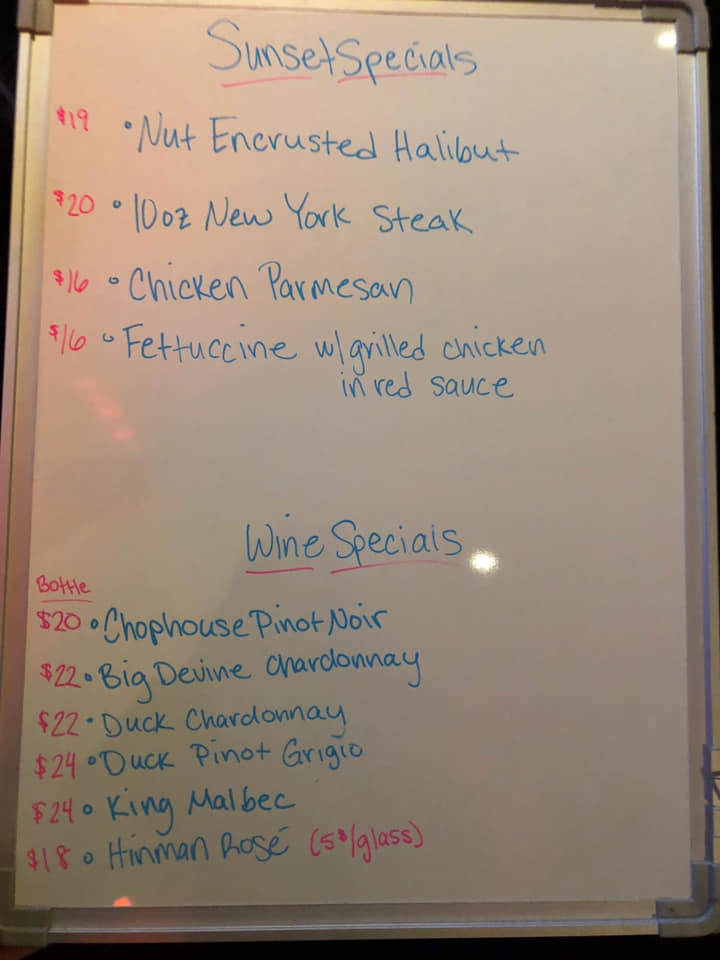 Sunset Specials
$19 • Nut Encrusted Halibut
$20 • 10oz New York Steak
$16 • Chicken Parmesan
$16 • Fettuccine w/grilled chicken
in red sauce
Wine Specials
Bottle
$20 • Chophouse Pinot Noir
$22 • Big Devine Chardonnay
$22 • Duck Chardonnay
$24 • Duck Pinot Grigio
$24 • King Malbec
$18 • Hinman Rosé (5$/glass)